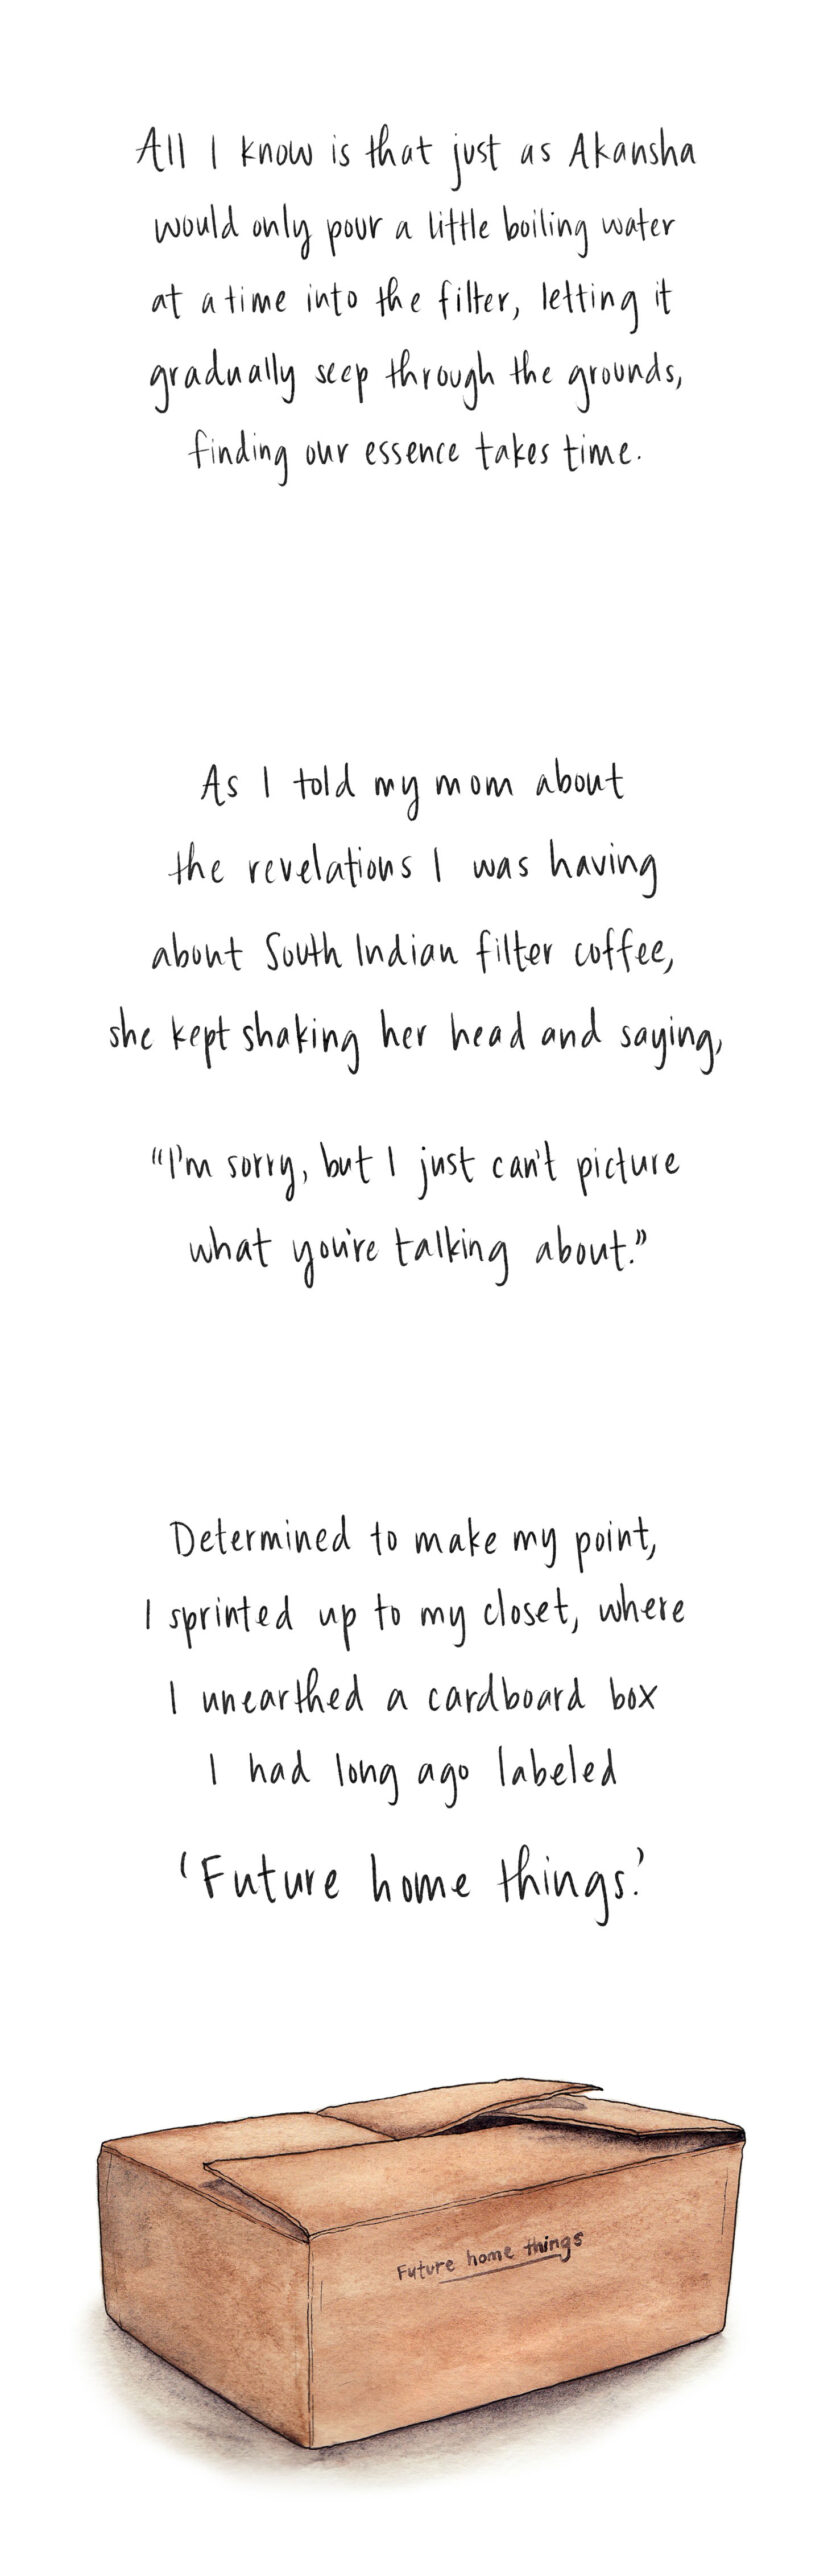 All I know is that just as Akansha
would only pour a little boiling water
at a time into the filter, letting it
gradually seep through the grounds,
finding our essence takes time.
As I told my mom about
the revelations I was having
about South Indian filter coffee,
she kept shaking her head and saying,
“I'm sorry, but I just can't picture
what you're talking about.”
Determined to make my point,
I sprinted up to my closet, where
I unearthed a cardboard box
I had long ago labeled
‘Future home things.’
Future home things